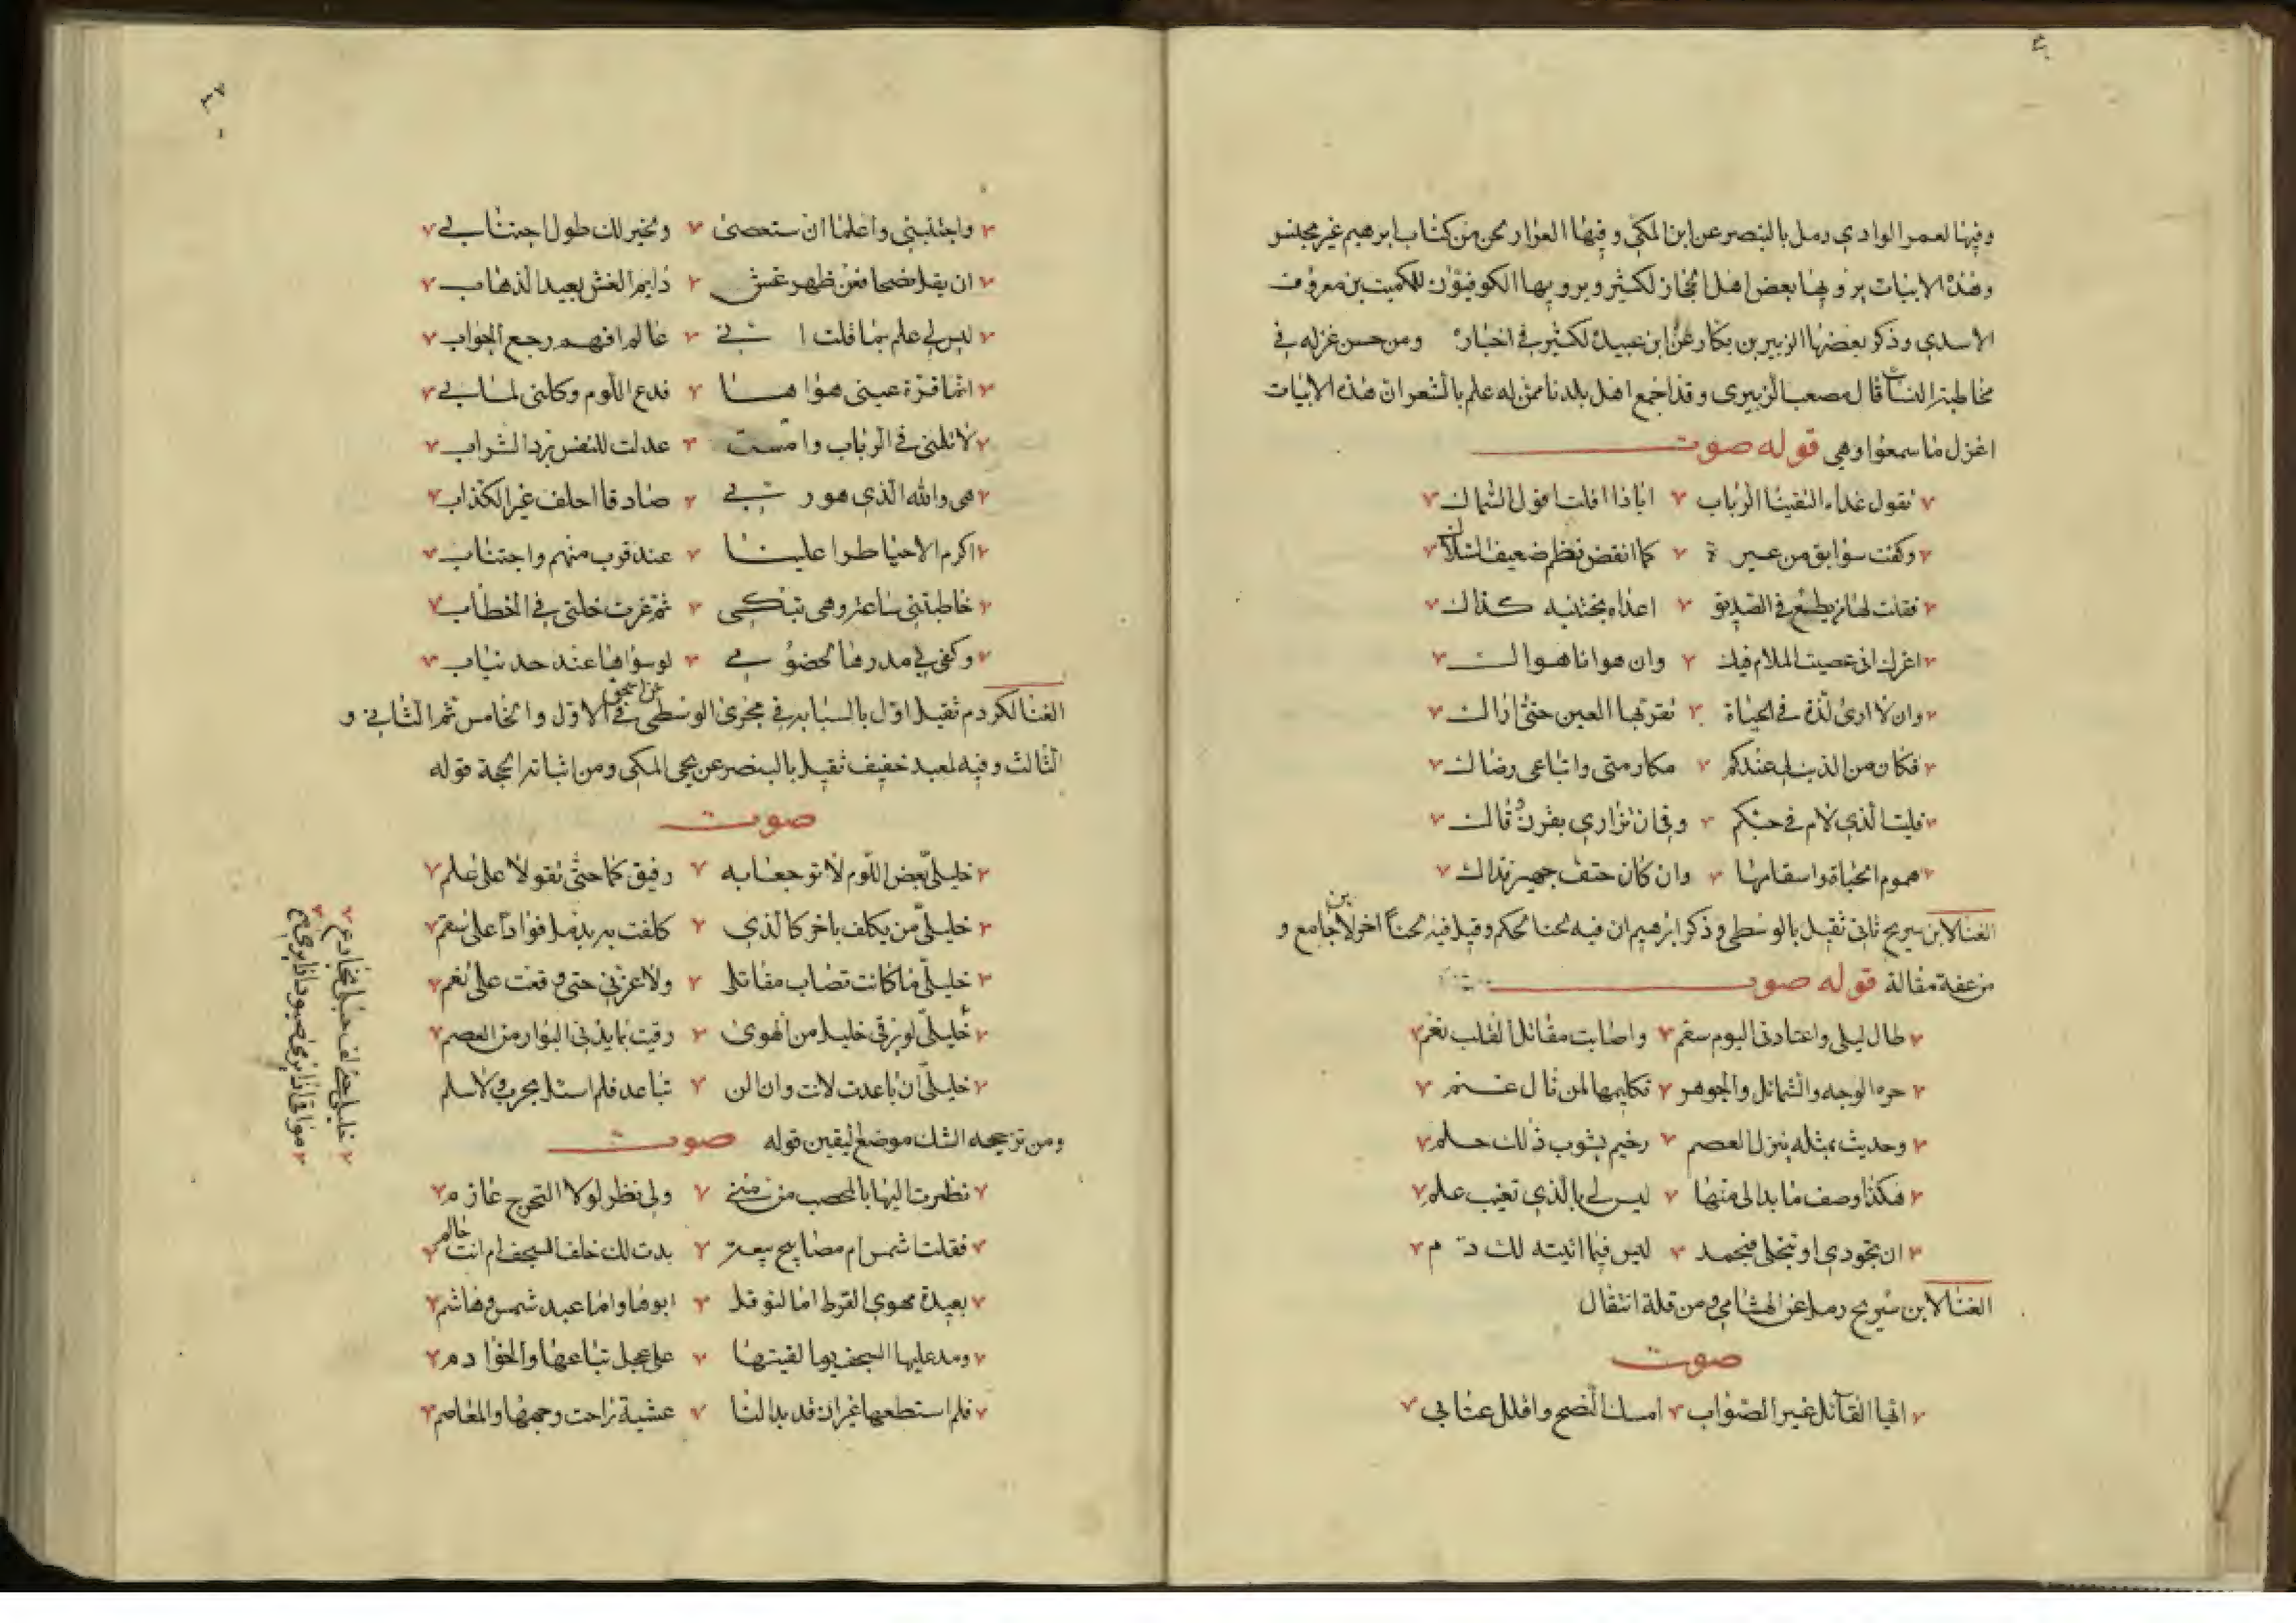 وفيها لعمر الوادي رمل بالبنصر عن ابن المكي وفيها العوار لحن من كتاب ابرهيم غير مجنس
وهذه الابيات يرويها بعض اهل الحجاز لكثير ويرويها الكوفيون للكميت بن معروف
الاسدي وذكر بعضها الزبير بن بكار عن ابن عبيدة لكثير في اخباره ومن حسن غزله في
مخاطبته النساء قال مصعب الزبيري وقد اجمع اهل بلدنا ممن له علم بالشعر ان هذه الابيات
اغزل ما سمعوا وهي قوله صوت
تقول غداة التقينا الرباب ايا ذا افلت افول السماك
وكفت سوابق من عبرة كما انفض نظم ضعيف السلاك
فقلت لها من يطع في الصديق اعداه يجتنبه كذاك
اغرك اني عصيت الملام فيك وان هوانا هواك
وان لا ارى لذة في الحياة تقر بها العين حتى اراك
فكان من الذنب لي عندكم مكارمتي واتباعي رضاك
فليت الذي لام في حبكم وفي ان تزاري بقرن قاك
هموم الحياة واسقامها وان كان حتف جهيز فداك
الغنا لابن سريج ثاني ثقيل بالوسطى وذكر ابرهيم ان فيه لحنا لحكم وقيل فيه لحنا اخر لابن جامع و
من عفة مقالة قوله صوت
طال ليلي واعتادني اليوم سقم واصابت مقاتل القلب نعم
حرة الوجه والشمائل والجوهر تكليمها لمن نال غنم
وحديث بمثله ينزل العصم رخيم يشوب ذلك حلم
هكذا وصف ما بدا لي منها ليس لي بالذي تغيب علم
ان تجودي او تبخلي فبحمد ليس فيما اتيته لك ذم
الغنا لابن سريج رمل عن الهشامي ومن قلة انتقال
صوت
ايها القائل غير الصواب امسك النصح واقلل عتابي
٣٧
واجتنبني واعلمن ان ستعصى ولخير لك طول اجتنابي
ان يقل نصحا فعن ظهر غش دايم الغش بعيد الذهاب
ليس لي علم بما قلت اني عالم افهم رجع الجواب
انما قرة عيني هواها فدع اللوم وكلني لما بي
لا تلمني في الرباب وامست عدلت للنفس برد الشراب
هي والله الذي هو ربي صادقا احلف غير الكذاب
اكرم الاحيا طرا علينا عند قرب منهم واجتناب
خاطبتني ساعة وهي تبكي ثم عزت خلتي في الخطاب
وكفى لي مدرها لخصومي لو سواها عند حد تباب
الغنا لكردم ثقيل اول بالسبابة في مجرى الوسطى عن اسحق في الاول والخامس ثم الثاني و
الثالث وفيه لمعبد خفيف ثقيل بالبنصر عن يحيى المكي ومن اثباته الحجة قوله
صوت
خليلي بعض اللوم لا توجعا به رفيقكما حتى تقولا على علم
خليلي من يكلف باخر كالذي كلفت به يدمل فوادا على سقم
خليلي ما كانت تصاب مقاتلي ولا غرتي حتى وقعت على نعم
خليلي لو يرقى خليل من الهوى رقيت بما يدني النوار من العصم
خليلي ان باعدت لانت وان الن تباعد فلم استل بحرب ولا سلم
ومن ترجيحه الشك موضع اليقين قوله صوت
نظرت اليها بالمحصب من منى ولي نظر لولا التحرج عازم
فقلت اشمس ام مصابيح بيعة بدت لك خلف السجف ام انت حالم
بعيدة مهوى القرط اما لنوفل ابوها واما عبد شمس وهاشم
ومد عليها السجف يوم لقيتها على عجل تباعها والخوادم
فلم استطعها غير ان قد بدا لنا عشية راحت وجهها والمعاصم